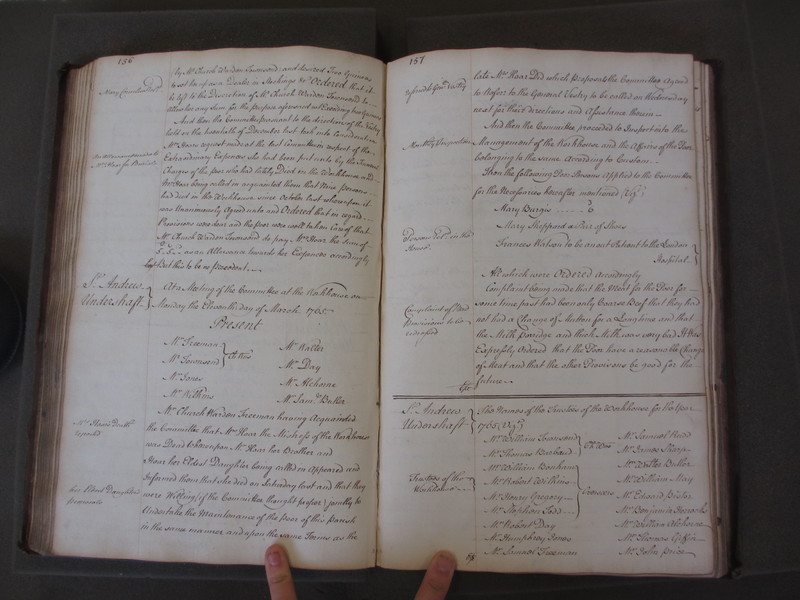 156
by Mr. Church Warden Townsend and desired Two Guineas
to set her up as a Dealer in Stockings &c Ordered that it
be left to the Discretion of Mr. Church Warden Townsend to
Allow her any sum for the purpose aforesaid not Exceeding two Guineas
And then the Committee pursuant to the direction of the Vestry
held on the twentieth of December last took into Consideration
Mr. Hoars request made at the last Committee in respect of the
Extraordinary Expences she had been put unto by the Funeral
Charges of the poor who had lately Died in the Workhouse and
Mr. Hoar being called in acquainted them that Nine persons
had died in the Workhouse since October last whereupon it
was Unanimously Agreed unto and Ordered that in regard
Provisions were dear and the poor were well taken Care of that
Mr. Church Warden Townsend do pay Mrs. Hoar the sum of
£5..5.. as an Allowance towards her Expences accordingly
but that this be no precedent
St. Andrew
Undershaft
At a Meeting of the Committee at the Workhouse on
Monday the Eleventh day of March 1765
Present
Mr. Freeman
Mr. Townsend
Ch: Wns
Mr. Jones
Mr. Wilkins
Mr. Waller
Mr. Day
Mr. Alchorne
Mr. Saml. Butler
Mrs. Hoars Death
reported
Mr. Church Warden Freeman having Acquainted
the Committee that Mrs. Hoar the Mistress of the Workhouse
was Dead Whereupon Mr. Hoar her Brother and
Hoar her Eldest Daughter being called in Appeared and
Informed them that She died on Saturday last and that they
were Willing (if the Committee thought proper) jointly to
Undertake the Maintenance of the Poor of this Parish
in the same manner and upon the same Terms as the
her Eldest Daughter
157
referred to Genl. Vestry
late Mrs. Hoar Did which Proposal the Committee Agreed
to Refer to the General Vestry to be called on Wednesday
next for their directions and Assistance therein
Monthly Inspection
And then the Committee proceeded to Inspect into the
Management of the Workhouse and the Affairs of the Poor
belonging to the same According to Custom
Then the following Poor Persons Applyed to the Committee
for the Necessaries hereafter mentioned (Vizt)
Mary Burgis
Mary Sheppard a Pair of Shoes
Frances Watson to be an out Patient to the London
Hospital
All which were Ordered Accordingly
Complaint of Bad
Provisions to be
redressed
Complaint being made that the Meat for the Poor for
some time past had been only Coarse Beef that they had
not had a Change of Mutton for a Long time and that
the Milk Porridge and thick Milk was very bad It was
Expressly Ordered that the Poor have a reasonable Change
of Meat and that the other Provisions be good for the
future
St. Andrew
Undershaft
The Names of the Trustees of the Workhouse for the Year
1765 (Vizt)
Trustees of the
Workhouse
Mr. William Townsend
Mr. Thomas
Ch: Wns
Mr. William Bonham
Mr. Robert Wilkins
Mr. Henry Gregory
Mr. Stephen
Overseers
Mr. Robert Day
Mr. Humphrey Jones
Mr. Samuel Freeman
Mr. Samuel
Mr. James Sharp
Mr. Waller
Mr. William May
Mr. Edward
Mr. Benjamin Horrocks
Mr. William Alchorne
Mr. Thomas Giffin
Mr. John Price